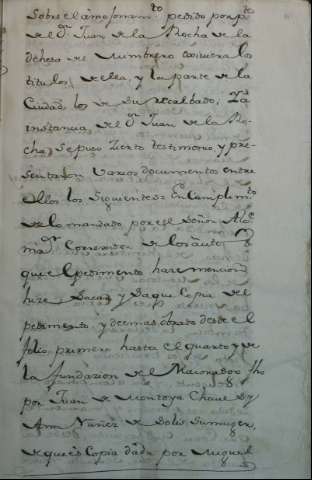 Sobre el amojonam.to pedido por p.te
de el D.n Juan de la Rocha de la
dehesa de Rumbrero exiviera los
titulos de ella, y la parte de la
Ciudad los de su
instancia de el D.n Juan de la Ro
cha, Se puso zierto testimonio y pre
sentaron Varios documentos entre
ellos los siguientes En Cumplim.to
de lo mandado por el Señor
Correxidor de los autos
que el pedimento hace mencion
hize Sacar y Saque Copia del
pedimento, y demas obrado desde el
folio primero hasta el quarto y de
la fundazion de el Maiorazgo fho
por Juan de Montoya Chaue Dᵃ
Ana Nuñez de Solis Su muger,
de que es Copia dada por Miguel